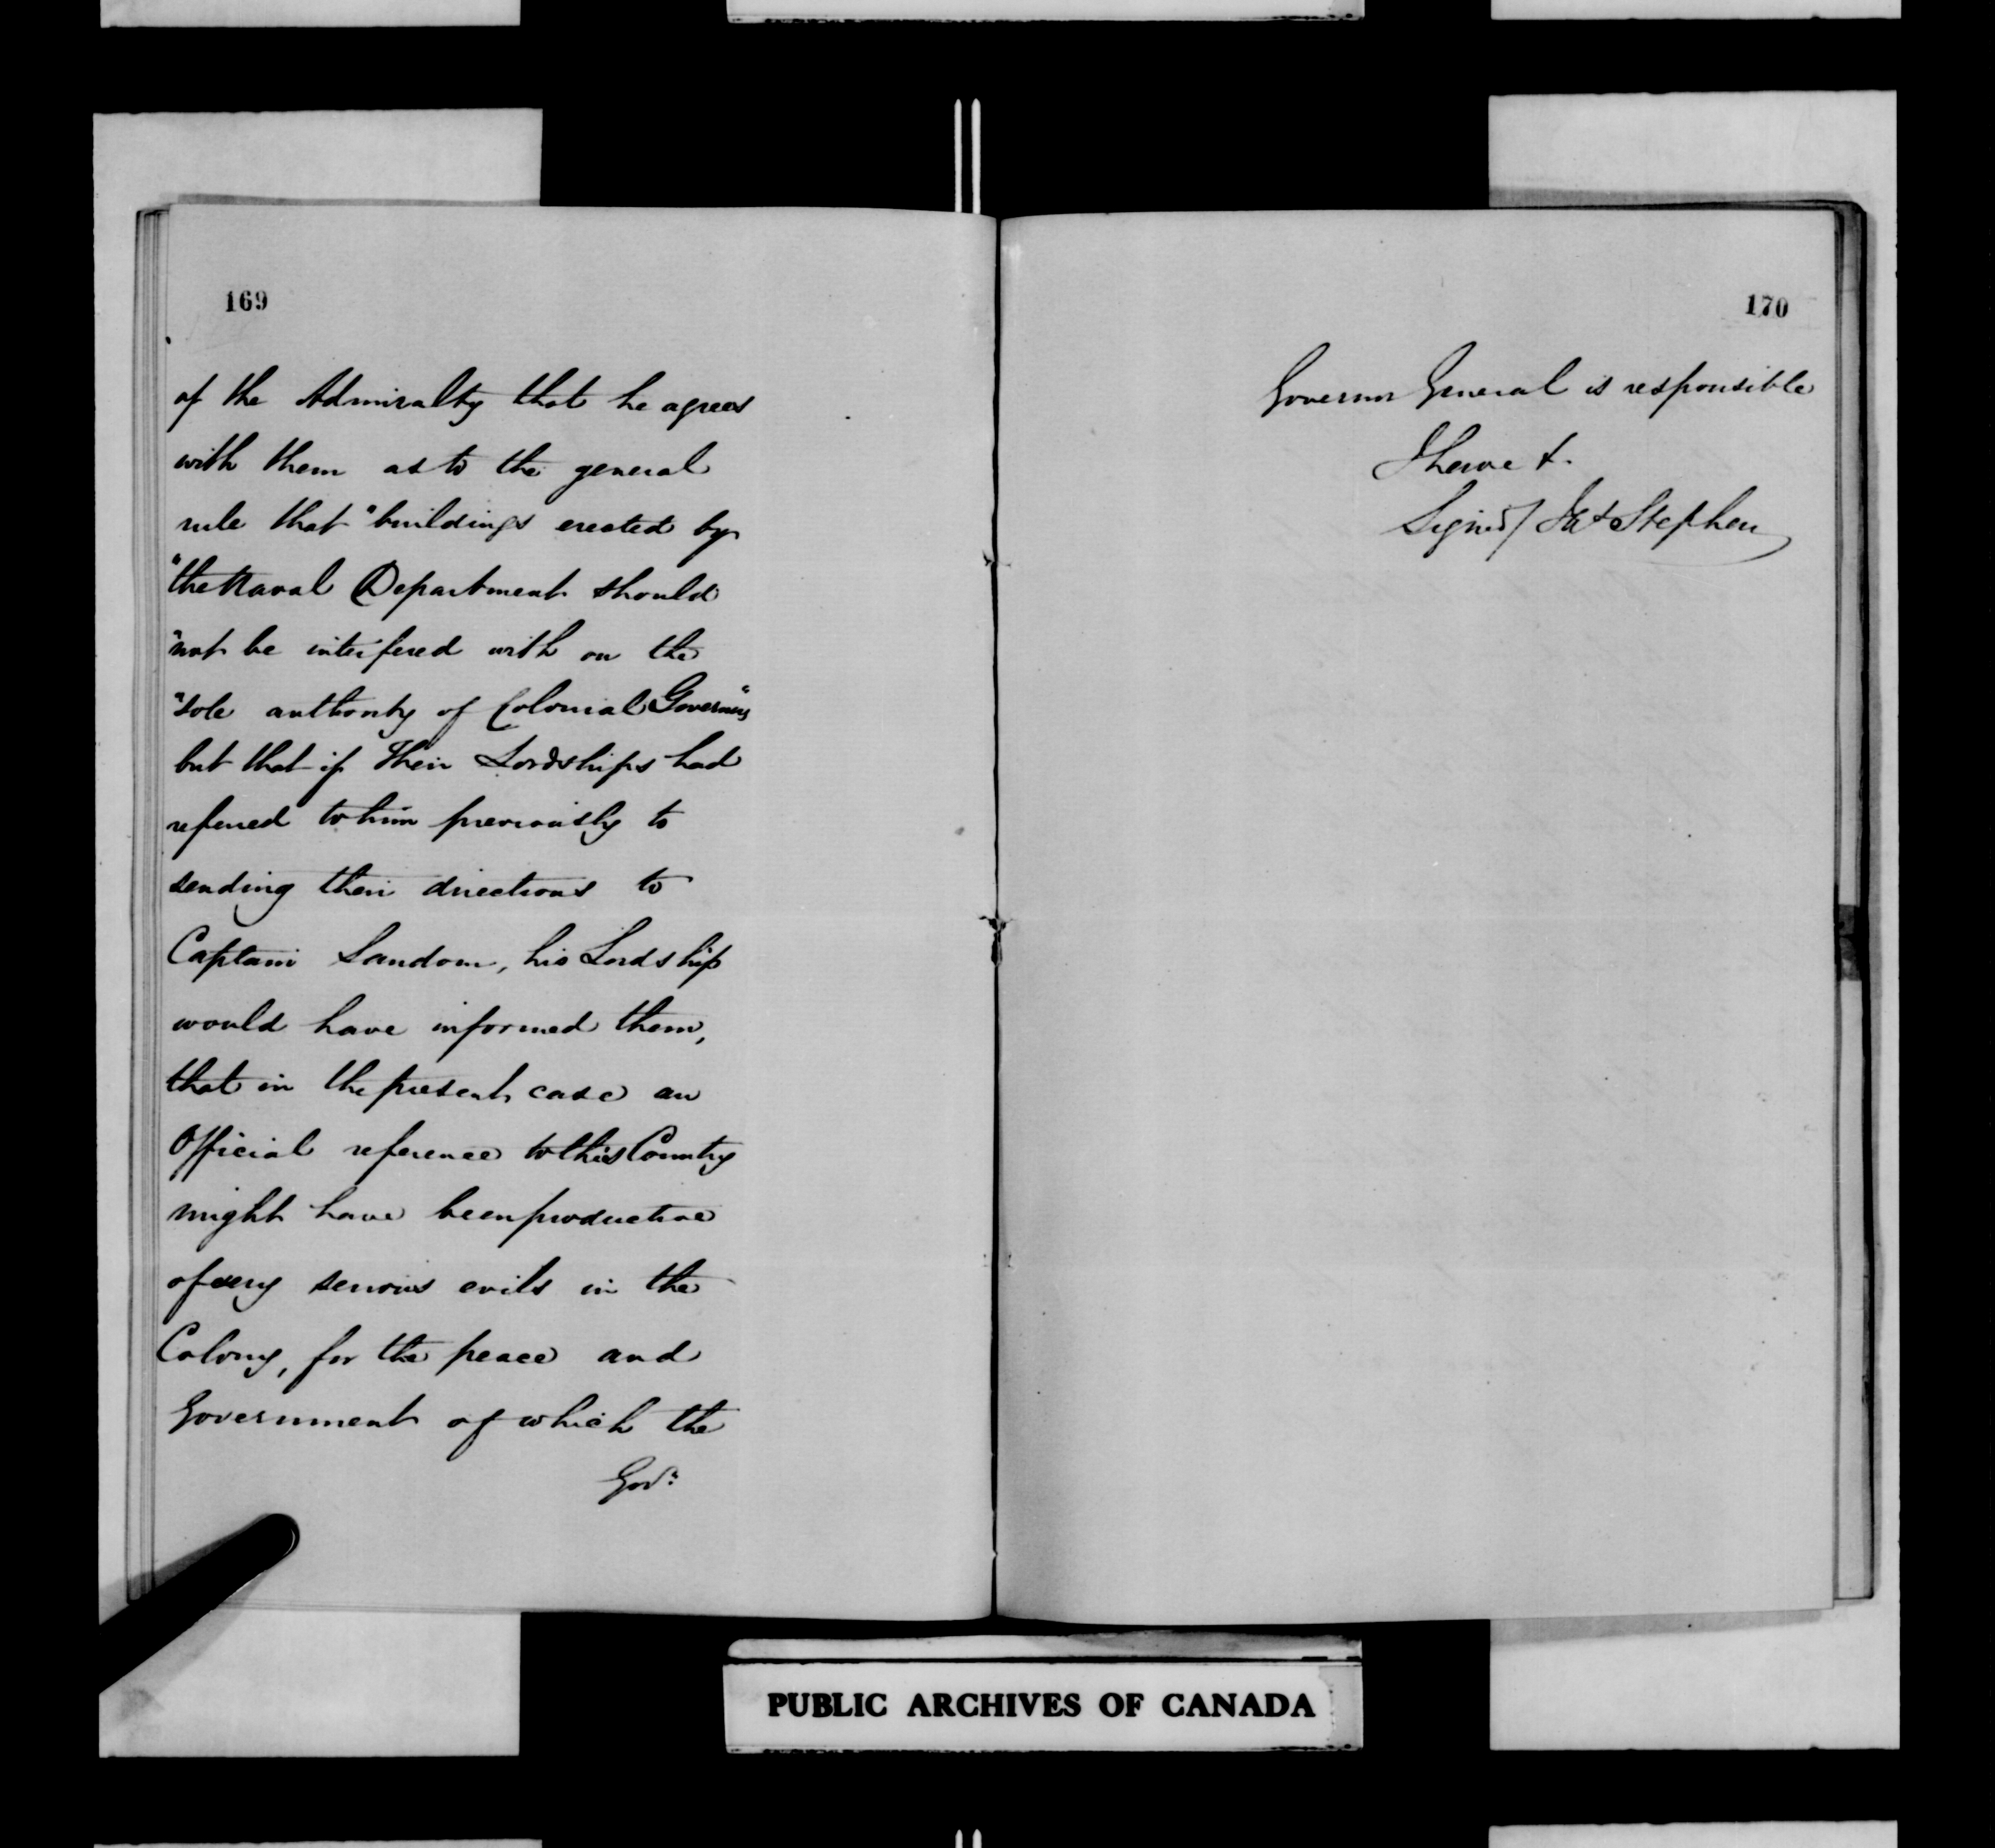 169
of the Admiralty that he agrees
with them as to the general
rule that "buildings erected by
"the Naval Department should
"not be interfered with on the
"sole authority of Colonial Governors"
but that if their Lordships had
referred to him previously to
sending their directions to
Captain Sandom, his Lordship
would have informed them,
that in the present case an
Official reference to this Country
might have been productive
of very serious evils in the
Colony, for the peace and
Government of which the
Govr.
170
Governor General is responsible
I have &.
Signed/ Jas Stephen
PUBLIC ARCHIVES OF CANADA